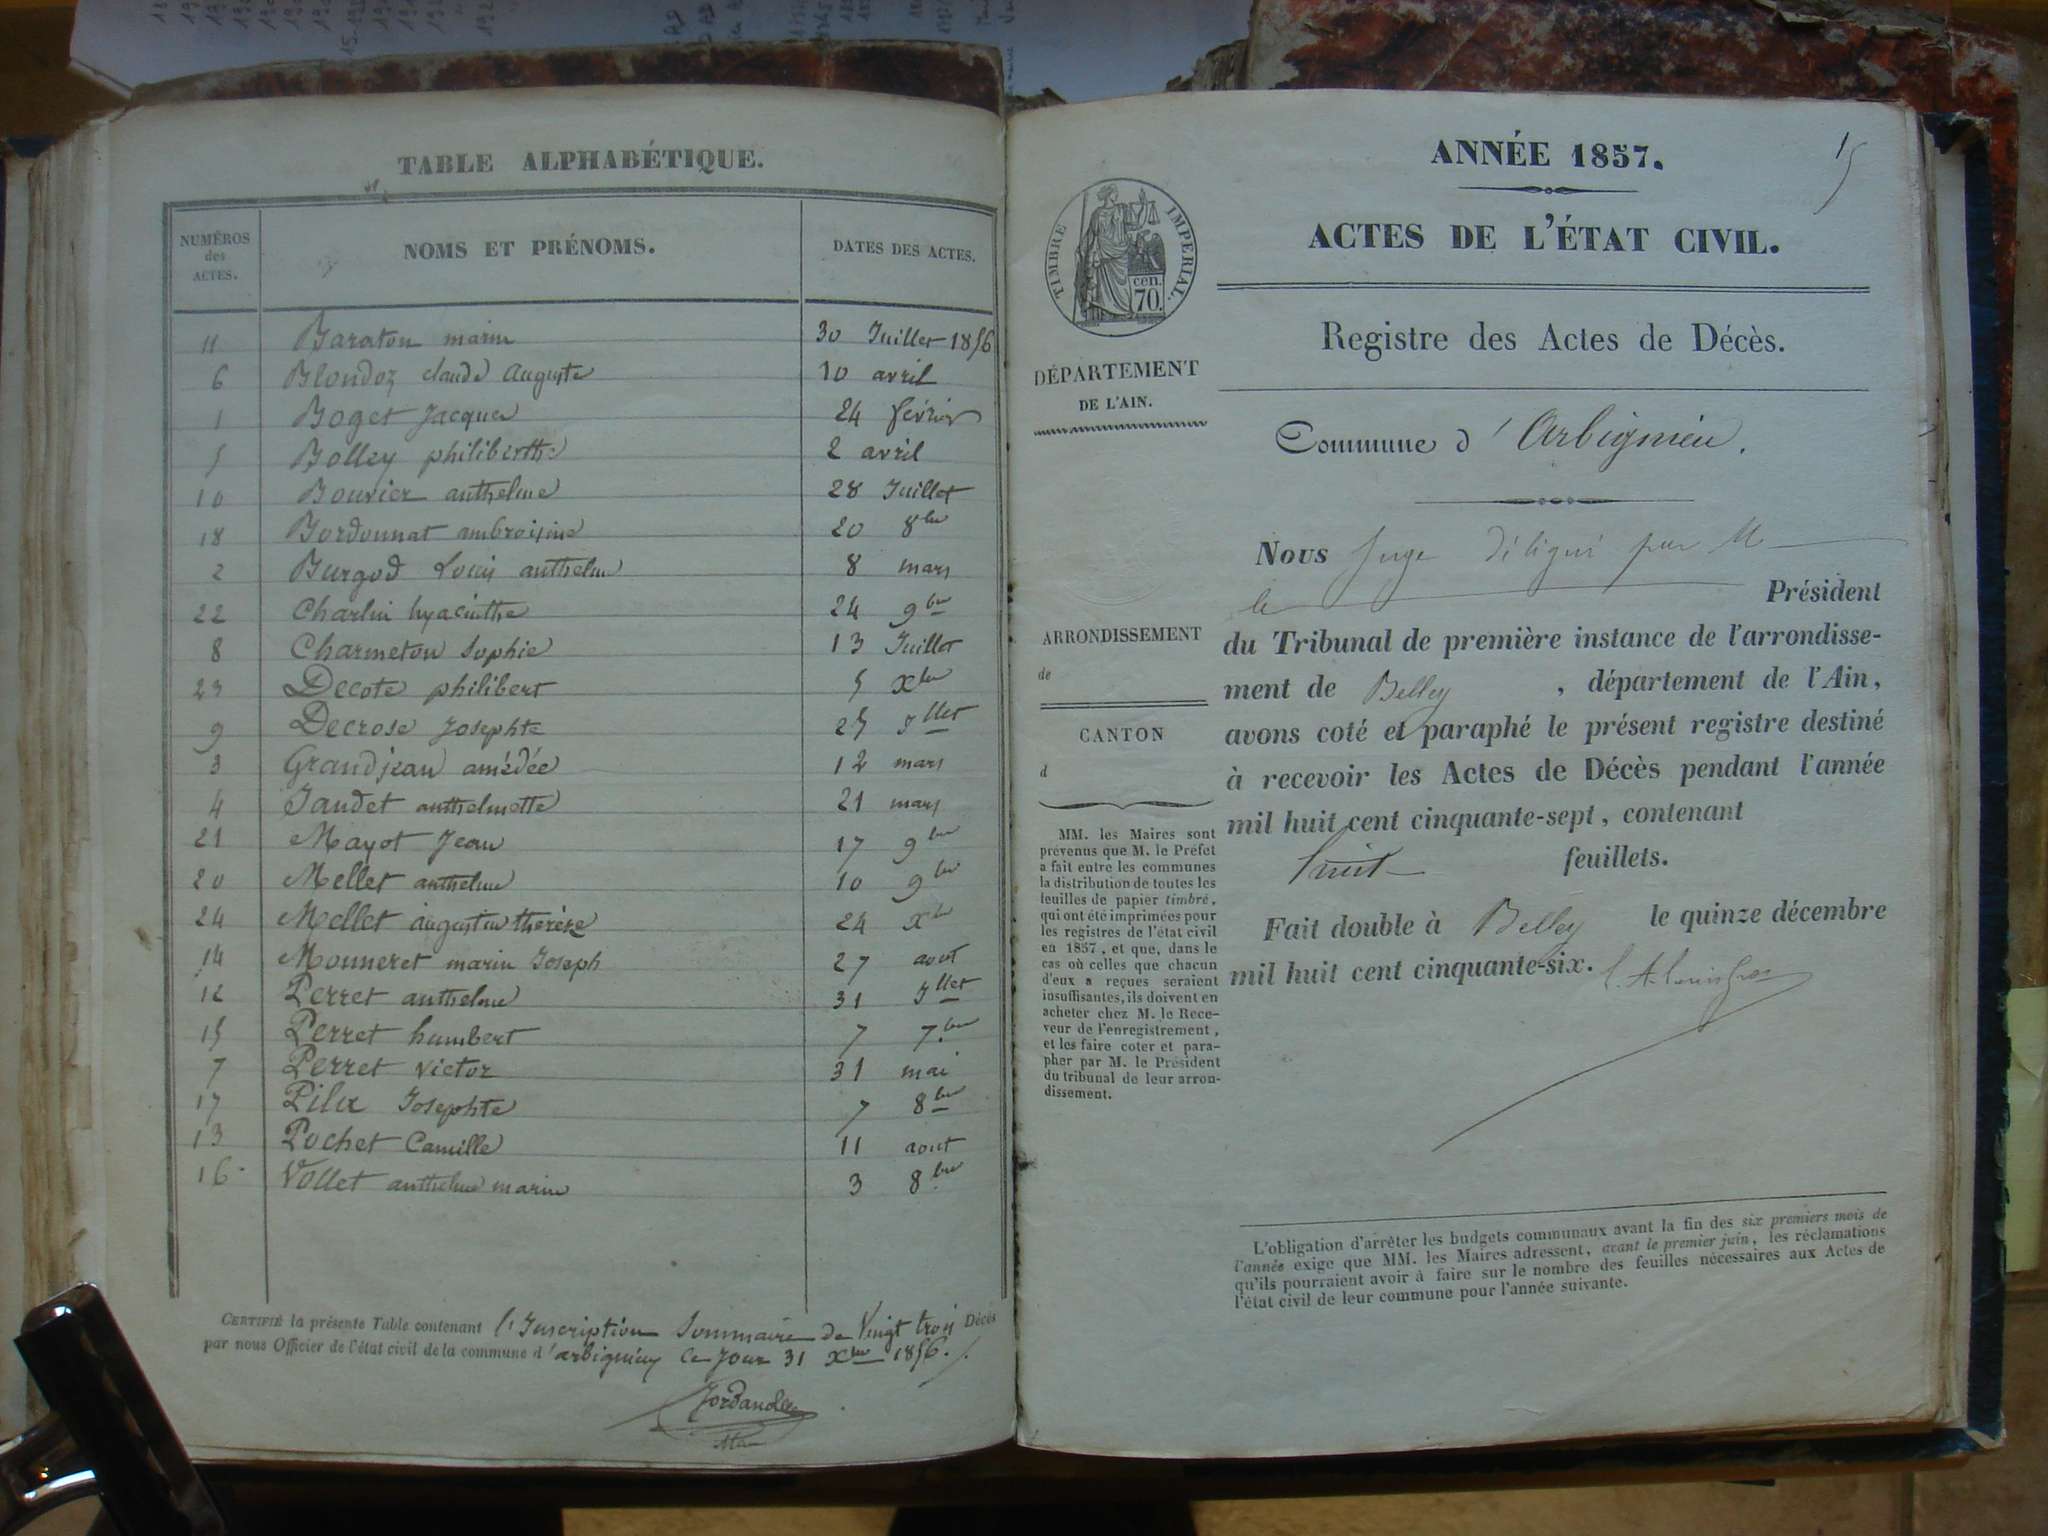 TABLE ALPHABÉTIQUE.
NUMÉROS des ACTES. NOMS ET PRÉNOMS. DATES DES ACTES.
11 Baraton marin 30 Juillet 1856
6 Blondoz claude Auguste 10 avril
1 Boget Jacques 24 février
5 Bolley philiberthe 2 avril
10 Bouvier anthelme 28 Juillet
18 Bordonnat ambroisine 20 8bre
2 Burgod Louis anthelme 8 mars
22 Charlin hyacinthe 24 9bre
8 Charmeton Sophie 13 Juillet
23 Decote philibert 5 xbre
9 Decrose Josephte 25 Jllet
3 Grandjean amédée 12 mars
4 Jandet anthelmette 21 mars
21 Mayot Jean 17 9bre
20 Mellet anthelme 10 9bre
24 Mellet augustin therèze 24 xbre
14 Monneret marin Joseph 27 aout
12 Perret anthelme 31 Jllet
15 Perret humbert 7 7bre
7 Perret victor 31 mai
17 Josephte 7 8bre
13 Pochet Camille 11 aout
16 Vollet anthelme marin 3 8bre
CERTIFIÉ la présente Table contenant l'Inscription Sommaire de Vingt trois Décès
par nous Officier de l'état civil de la commune d'arbignieu ce jour 31 xbre 1856.
15
ANNÉE 1857.
ACTES DE L'ÉTAT CIVIL.
Registre des Actes de Décès.
TIMBRE IMPERIAL.
cen. 70.
DÉPARTEMENT
DE L'AIN.
Commune d'Arbignieu.
Nous Juge délégué par M
le Président
du Tribunal de première instance de l'arrondisse-
ment de Belley, département de l'Ain,
avons coté et paraphé le présent registre destiné
à recevoir les Actes de Décès pendant l'année
mil huit cent cinquante-sept, contenant
huit feuillets.
Fait double à Belley le quinze décembre
mil huit cent cinquante-six.
ARRONDISSEMENT
de
CANTON
d
MM. les Maires sont
prévenus que M. le Préfet
a fait entre les communes
la distribution de toutes les
feuilles de papier timbré,
qui ont été imprimées pour
les registres de l'état civil
en 1857, et que, dans le
cas où celles que chacun
d'eux a reçues seraient
insuffisantes, ils doivent en
acheter chez M. le Rece-
veur de l'enregistrement,
et les faire coter et para-
pher par M. le Président
du tribunal de leur arron-
dissement.
L'obligation d'arrêter les budgets communaux avant la fin des six premiers mois de
l'année exige que MM. les Maires adressent, avant le premier juin, les réclamations
qu'ils pourraient avoir à faire sur le nombre des feuilles nécessaires aux Actes de
l'état civil de leur commune pour l'année suivante.